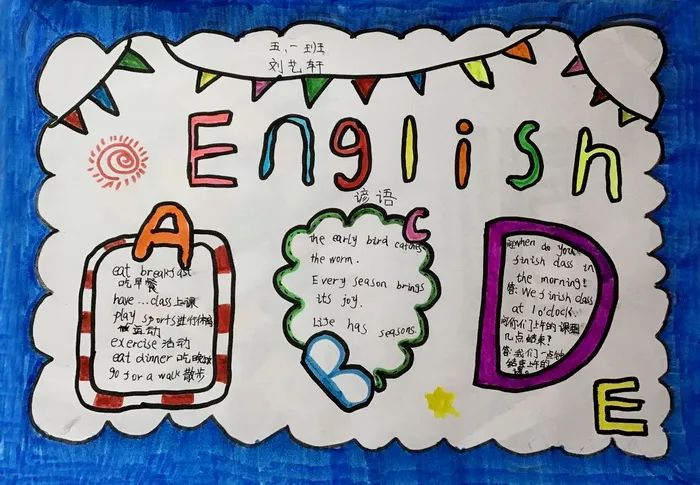 五、一班
刘艺轩
English
谚语
A
eat breakfast
吃早餐
have...class上课
play sports进行体育
运动
exercise 活动
eat dinner 吃晚饭
go for a walk 散步
C
the early bird catches
the worm.
Every season brings
its joy.
Life has seasons.
B
D
问when do you
finish class in
the morning?
答: We finish class
at 1 o'clock.
问你们上午的课程
几点结束?
答:我们一点钟
结束上午的
课。
E